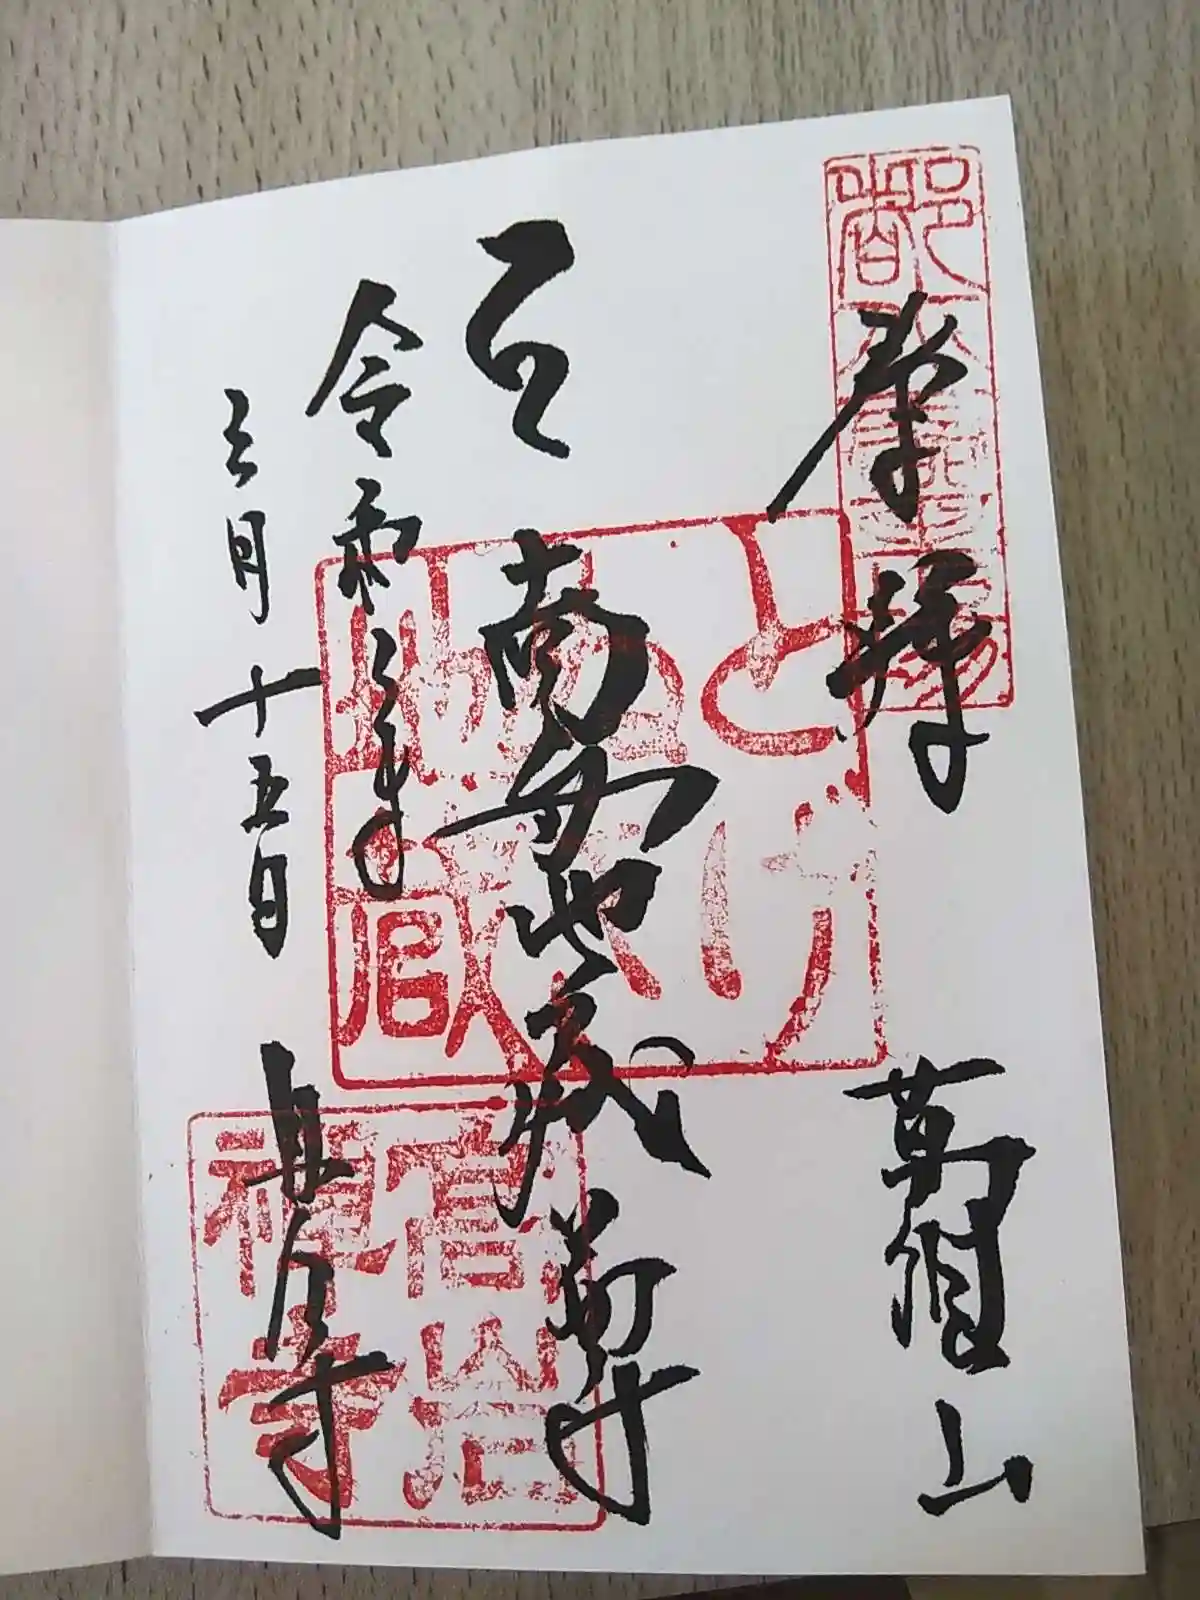 奉拝 萬頂山
南無地蔵尊
令和三年
三月十五日
高岩寺
とげ
ぬき
地蔵
高岩
禅寺